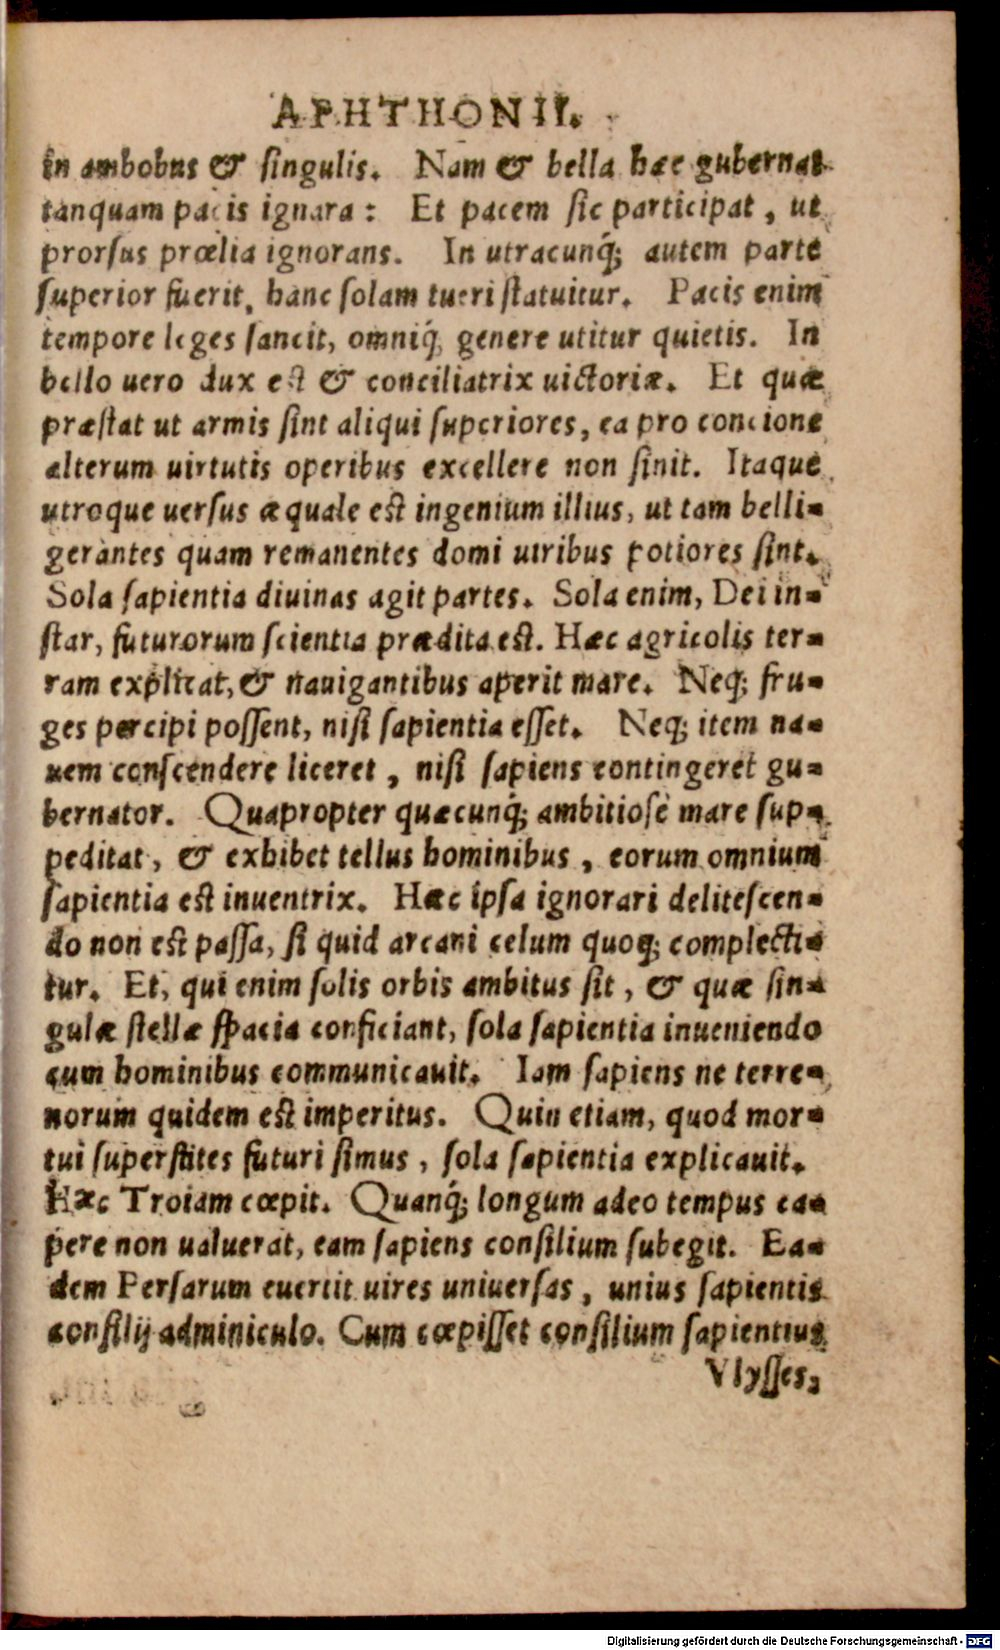 APHTHONII.
in ambobus & singulis. Nam & bella hæc gubernat
tanquam pacis ignara: Et pacem sic participat, ut
prorsus prœlia ignorans. In utracunq́; autem parte
superior fuerit, hanc solam tueri statuitur. Pacis enim
tempore leges sancit, omniq́; genere utitur quietis. In
bello uero dux est & conciliatrix uictoriæ. Et quæ
præstat ut armis sint aliqui superiores, ea pro concione
alterum uirtutis operibus excellere non sinit. Itaque
utroque uersus æquale est ingenium illius, ut tam belli-
gerantes quam remanentes domi uiribus potiores sint.
Sola sapientia diuinas agit partes. Sola enim, Dei in-
star, futurorum scientia prædita est. Hæc agricolis ter-
ram explicat, & nauigantibus aperit mare. Neq; fru-
ges percipi possent, nisi sapientia esset. Neq; item na-
uem conscendere liceret, nisi sapiens contingeret gu-
bernator. Quapropter quæcunq́; ambitiosè mare sup-
peditat, & exhibet tellus hominibus, eorum omnium
sapientia est inuentrix. Hæc ipsa ignorari delitescen-
do non est passa, si quid arcani celum quoq; complecti-
tur. Et, qui enim solis orbis ambitus sit, & quæ sin-
gulæ stellæ spacia conficiant, sola sapientia inueniendo
cum hominibus communicauit. Iam sapiens ne terre-
norum quidem est imperitus. Quin etiam, quod mor-
tui superstites futuri simus, sola sapientia explicauit.
Hæc Troiam cœpit. Quanq́; longum adeo tempus ca-
pere non ualuerat, eam sapiens consilium subegit. Ea-
dem Persarum euertit uires uniuersas, unius sapientis
consilij adminiculo. Cum cœpisset consilium sapientius
Vlysses,
Digitalisierung gefördert durch die Deutsche Forschungsgemeinschaft - DFG